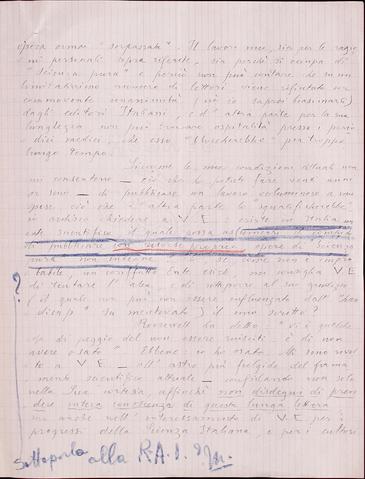 opera ormai "sorpassata". Il lavoro mio, sia per le ragio
ni personali sopra riferite, sia perchè si occupa di
"scienza pura" e perciò non può contare che su un
limitatissimo numero di lettori viene rifiutato con
commovente unanimità (nè io saprei biasimarli)
dagli editori Italiani, e d'altra parte per la sua
lunghezza non può trovare ospitalità presso i perio
dici medici, chè esso per troppo
lungo tempo.
Siccome le mie condizioni attuali non
mi consentono — ciò che ho potuto fare venti anni
or sono — di pubblicare un lavoro voluminoso a mie
spese ciò che d'altra parte lo "squalificherebbe"
chiedere a V. E. esiste in Italia un
ente scientifico il quale possa
di pubblicare con risorse proprie opere di scienza
pura non
un ente esiste, mi consiglia V. E.
di tentare l' e di sottoporre al suo giudizio
(il quale non può non essere influenzato dall'
su mentovato) il mio scritto?
Roosevelt ha detto: "Vi è qualche
cosa di peggio del non essere riusciti: è di non
avere osato" Ebbene: io ho osato. Mi sono rivol
to a V. E. — all'astro più fulgido del firma
mento scientifico attuale — confidando non solo
nella Sua cortesia, affinchè non disdegni di pren
dere intera conoscenza di questa lunga lettera
ma anche nell'interessamento di V. E. per i
progressi della Scienza Italiana, e per i cultori
?
Sottoporlo alla R.A.I.?